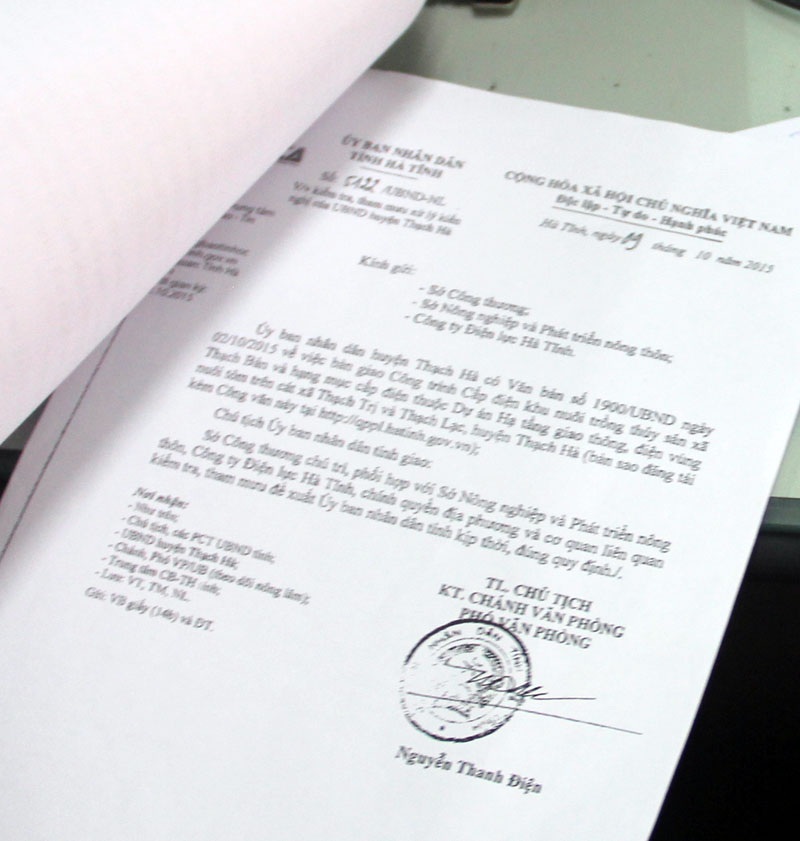 ỦY BAN NHÂN DÂN
TỈNH HÀ TĨNH
Số: 5122 /UBND-NL
V/v kiểm tra, tham mưu xử lý kiến
nghị của UBND huyện Thạch Hà
CỘNG HÒA XÃ HỘI CHỦ NGHĨA VIỆT NAM
Độc lập - Tự do - Hạnh phúc
Hà Tĩnh, ngày tháng 10 năm 2015
Kính gửi:
- Sở Công thương;
- Sở Nông nghiệp và Phát triển nông thôn;
- Công ty Điện lực Hà Tĩnh.
Ủy ban nhân dân huyện Thạch Hà có Văn bản số 1900/UBND ngày
02/10/2015 về việc bàn giao Công trình Cấp điện khu nuôi trồng thủy sản xã
Thạch Bàn và hạng mục cấp điện thuộc Dự án Hạ tầng giao thông, điện vùng
nuôi tôm trên cát xã Thạch Trị và Thạch Lạc, huyện Thạch Hà (bản sao đăng tải
kèm Công văn này tại http://qppl.hatinh.gov.vn);
Chủ tịch Ủy ban nhân dân tỉnh giao:
Sở Công thương chủ trì, phối hợp với Sở Nông nghiệp và Phát triển nông
thôn, Công ty Điện lực Hà Tĩnh, chính quyền địa phương và cơ quan liên quan
kiểm tra, tham mưu đề xuất Ủy ban nhân dân tỉnh kịp thời, đúng quy định./.
Nơi nhận:
- Như trên;
- Chủ tịch, các PCT UBND tỉnh;
- UBND huyện Thạch Hà;
- Chánh, Phó VP/UB (theo dõi nông lâm);
- Trung tâm CB-TH tỉnh;
- Lưu: VT, TM, NL.
Gửi: VB giấy (14b) và ĐT.
TL. CHỦ TỊCH
KT. CHÁNH VĂN PHÒNG
PHÓ VĂN PHÒNG
NHÂN DÂN TỈNH
Nguyễn Thanh Điện